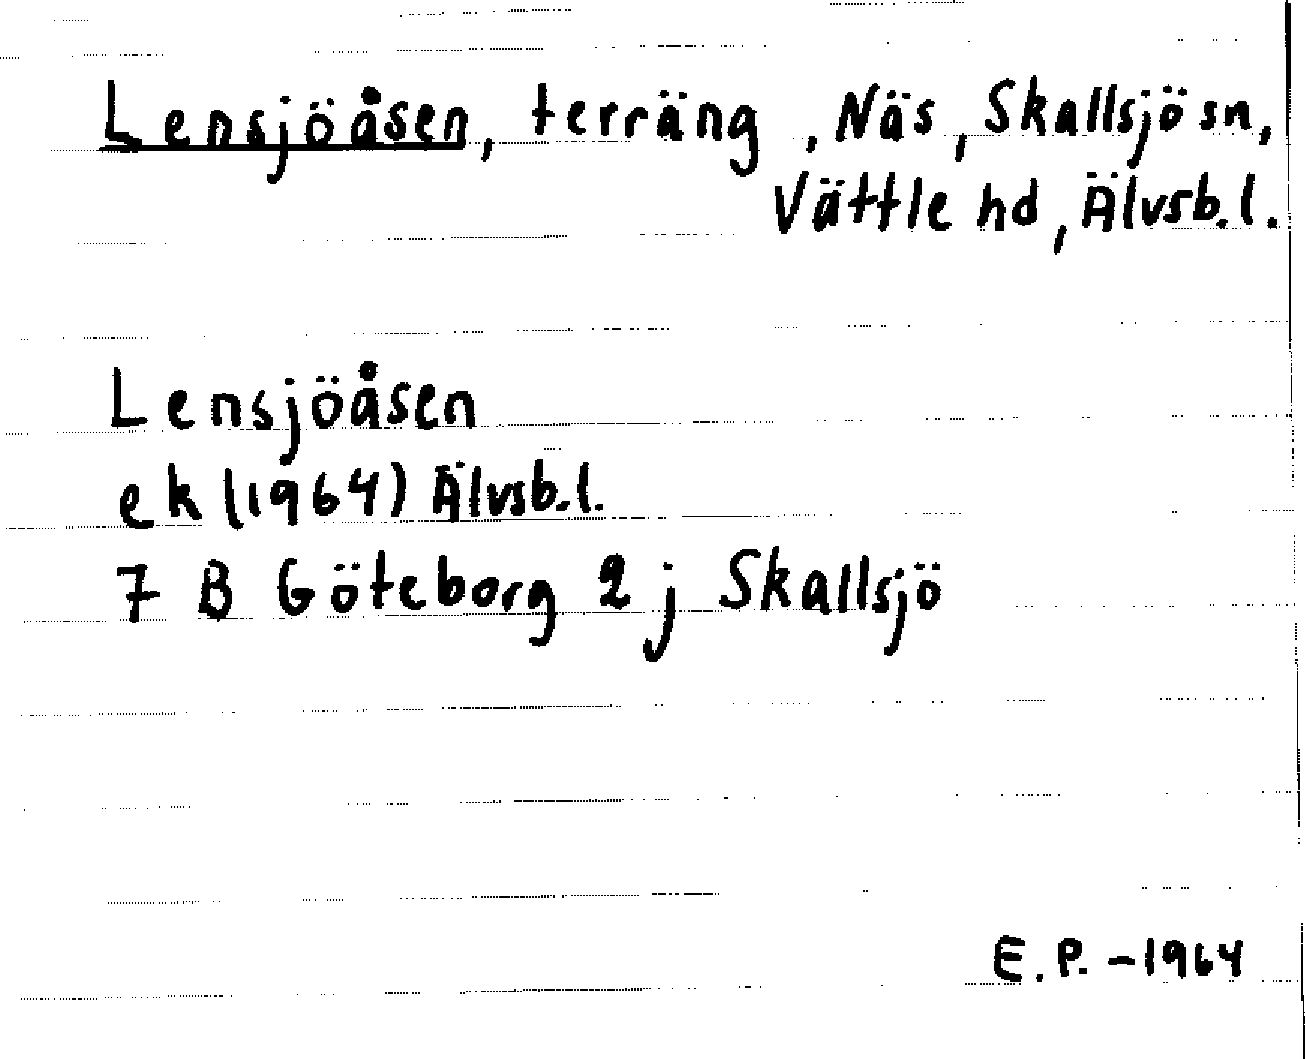 Lensjöåsen, terräng , Näs, Skallsjö sn,
Vättle hd, Älvsb.l.
Lensjöåsen
ek (1964) Älvsb.l.
7 B Göteborg 2 j Skallsjö
E.P. -1964